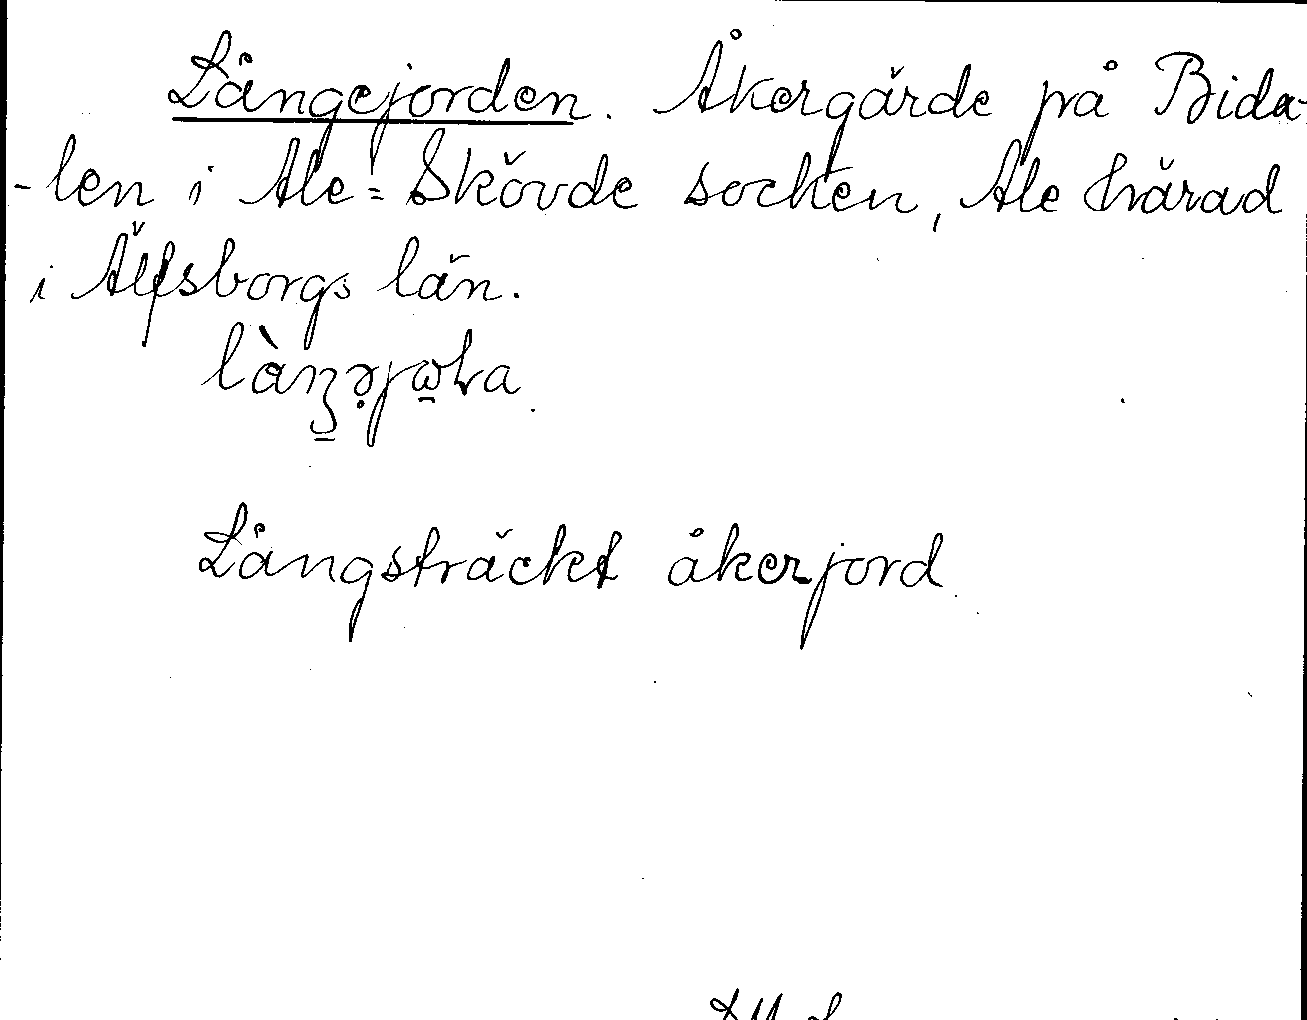 Långejorden. Åkergärde på Bida-
-len i Ale=Skövde socken, Ale härad
i Älfsborgs län.
Långsträckt åkerjord